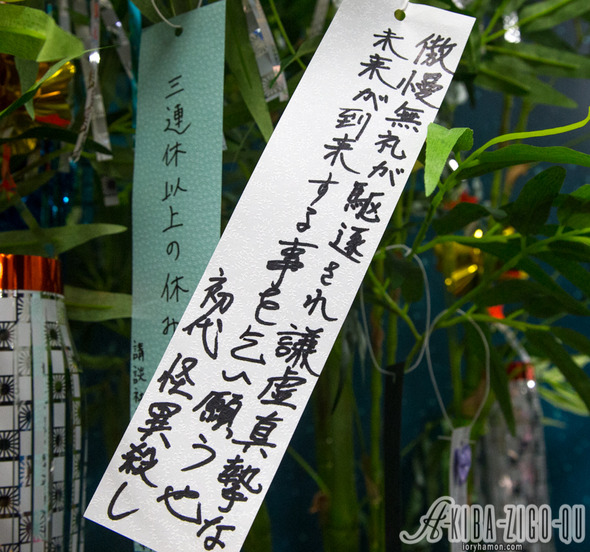 傲慢無礼が駆逐され謙虚真摯な
未来が到来する事を乞い願う也
初代 怪異殺し
三連休以上の休み
講談
AKIBA-ZIGO-QU
ioryhamon.com